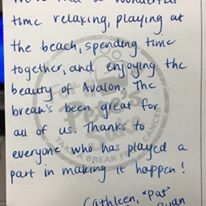 time relaxing, playing at
the beach, spending time
together, and enjoying the
beauty of Avalon. The
break's been great for
all of us. Thanks to
everyone who has played a
part in making it happen!
Cathleen, "Pat"
Ryan